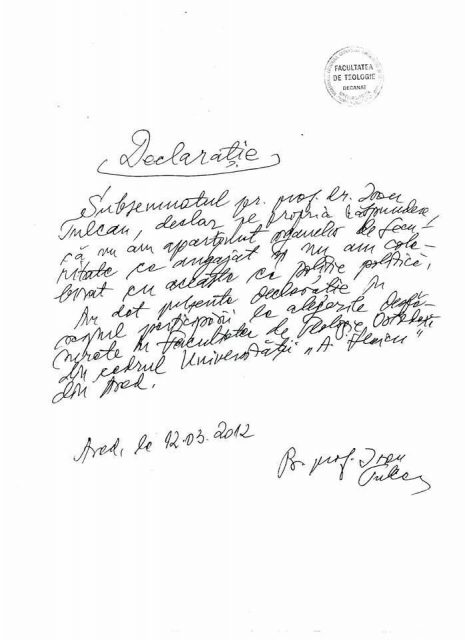 FACULTATEA
DE TEOLOGIE
DECANAT
Declarație
Subsemnatul pr. prof. dr. Ioan
Tulcan, declar pe propria răspundere
că nu am aparținut organelor de secu-
ritate ca angajat și nu am cola-
borat cu aceasta ca poliție politică.
Am dat prezenta declarație în
cazul participării la alegerile desfă-
șurate în Facultatea de Teologie Ortodoxă
din cadrul Universității „A. Vlaicu"
din Arad.
Arad, la 12.03.2012
Pr. prof. Ioan
Tulcan